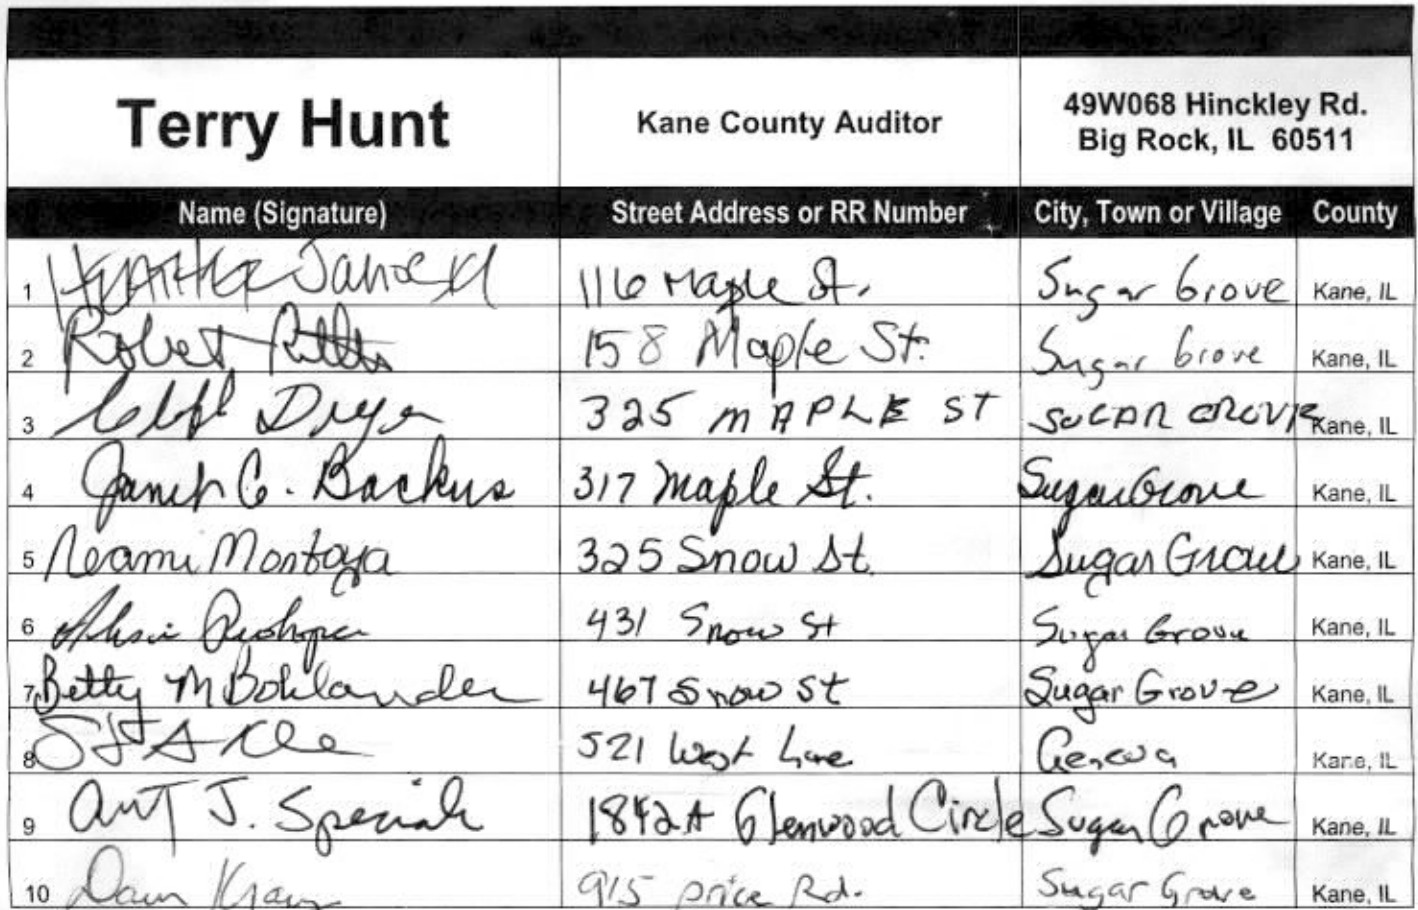 Terry Hunt Kane County Auditor 49W068 Hinckley Rd.
Big Rock, IL 60511
Name (Signature) Street Address or RR Number City, Town or Village County
1 116 Maple St. Sugar Grove Kane, IL
2 Robert 158 Maple St. Sugar Grove Kane, IL
3 325 MAPLE ST SUGAR GROVE Kane, IL
4 Janet C. Backus 317 Maple St. Sugar Grove Kane, IL
5 Montoya 325 Snow St. Sugar Grove Kane, IL
6 431 Snow St Sugar Grove Kane, IL
7 Betty M Bohlander 467 Snow St Sugar Grove Kane, IL
8 521 West Lane Geneva Kane, IL
9 J. 1842A Glenwood Circle Sugar Grove Kane, IL
10 915 Price Rd. Sugar Grove Kane, IL